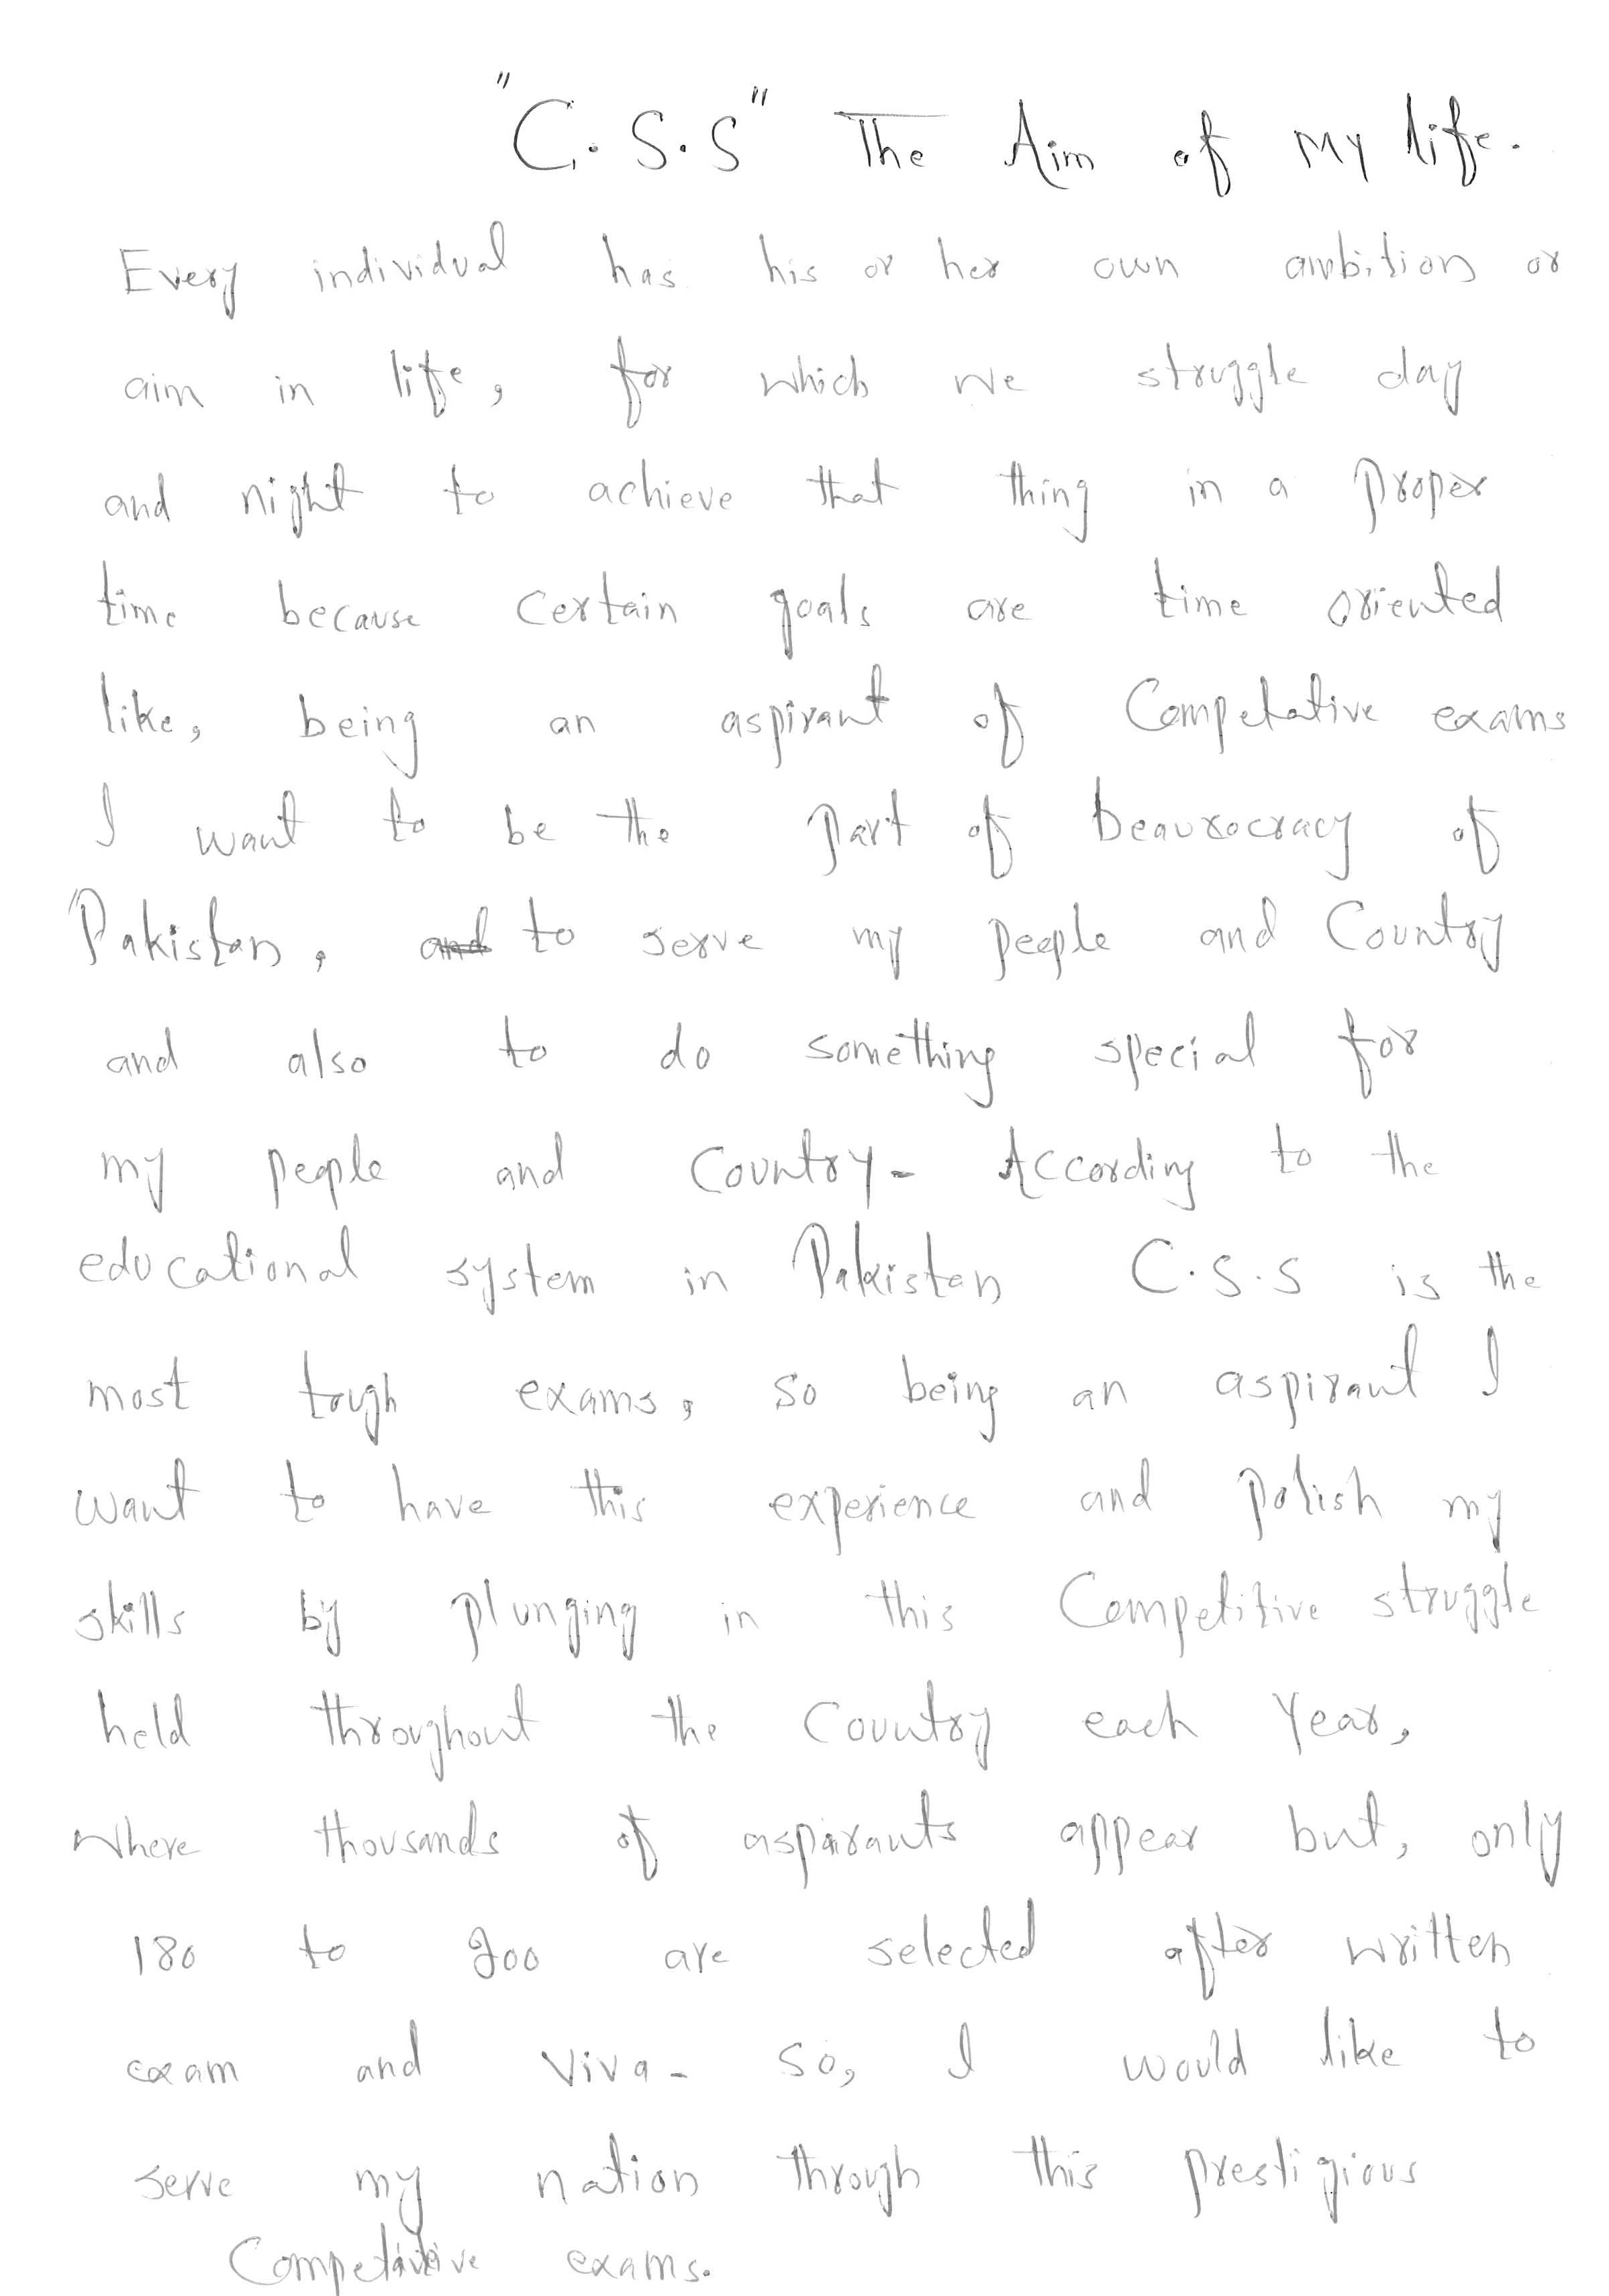 "C.S.S" The Aim of My life.
Every individual has his or her own ambition or
aim in life, for which we struggle day
and night to achieve that thing in a proper
time because certain goals are time oriented
like, being an aspirant of Competative exams
I want to be the part of beaurocracy of
Pakistan, and to serve my people and Country
and also to do something special for
my people and Country- According to the
educational system in Pakistan C.S.S is the
most tough exams, so being an aspirant I
want to have this experience and polish my
skills by plunging in this Competitive struggle
held throughout the Country each Year,
Where thousands of aspirants appear but, only
180 to 200 are selected after written
exam and Viva- So, I would like to
serve my nation through this prestigious
Competitive exams.